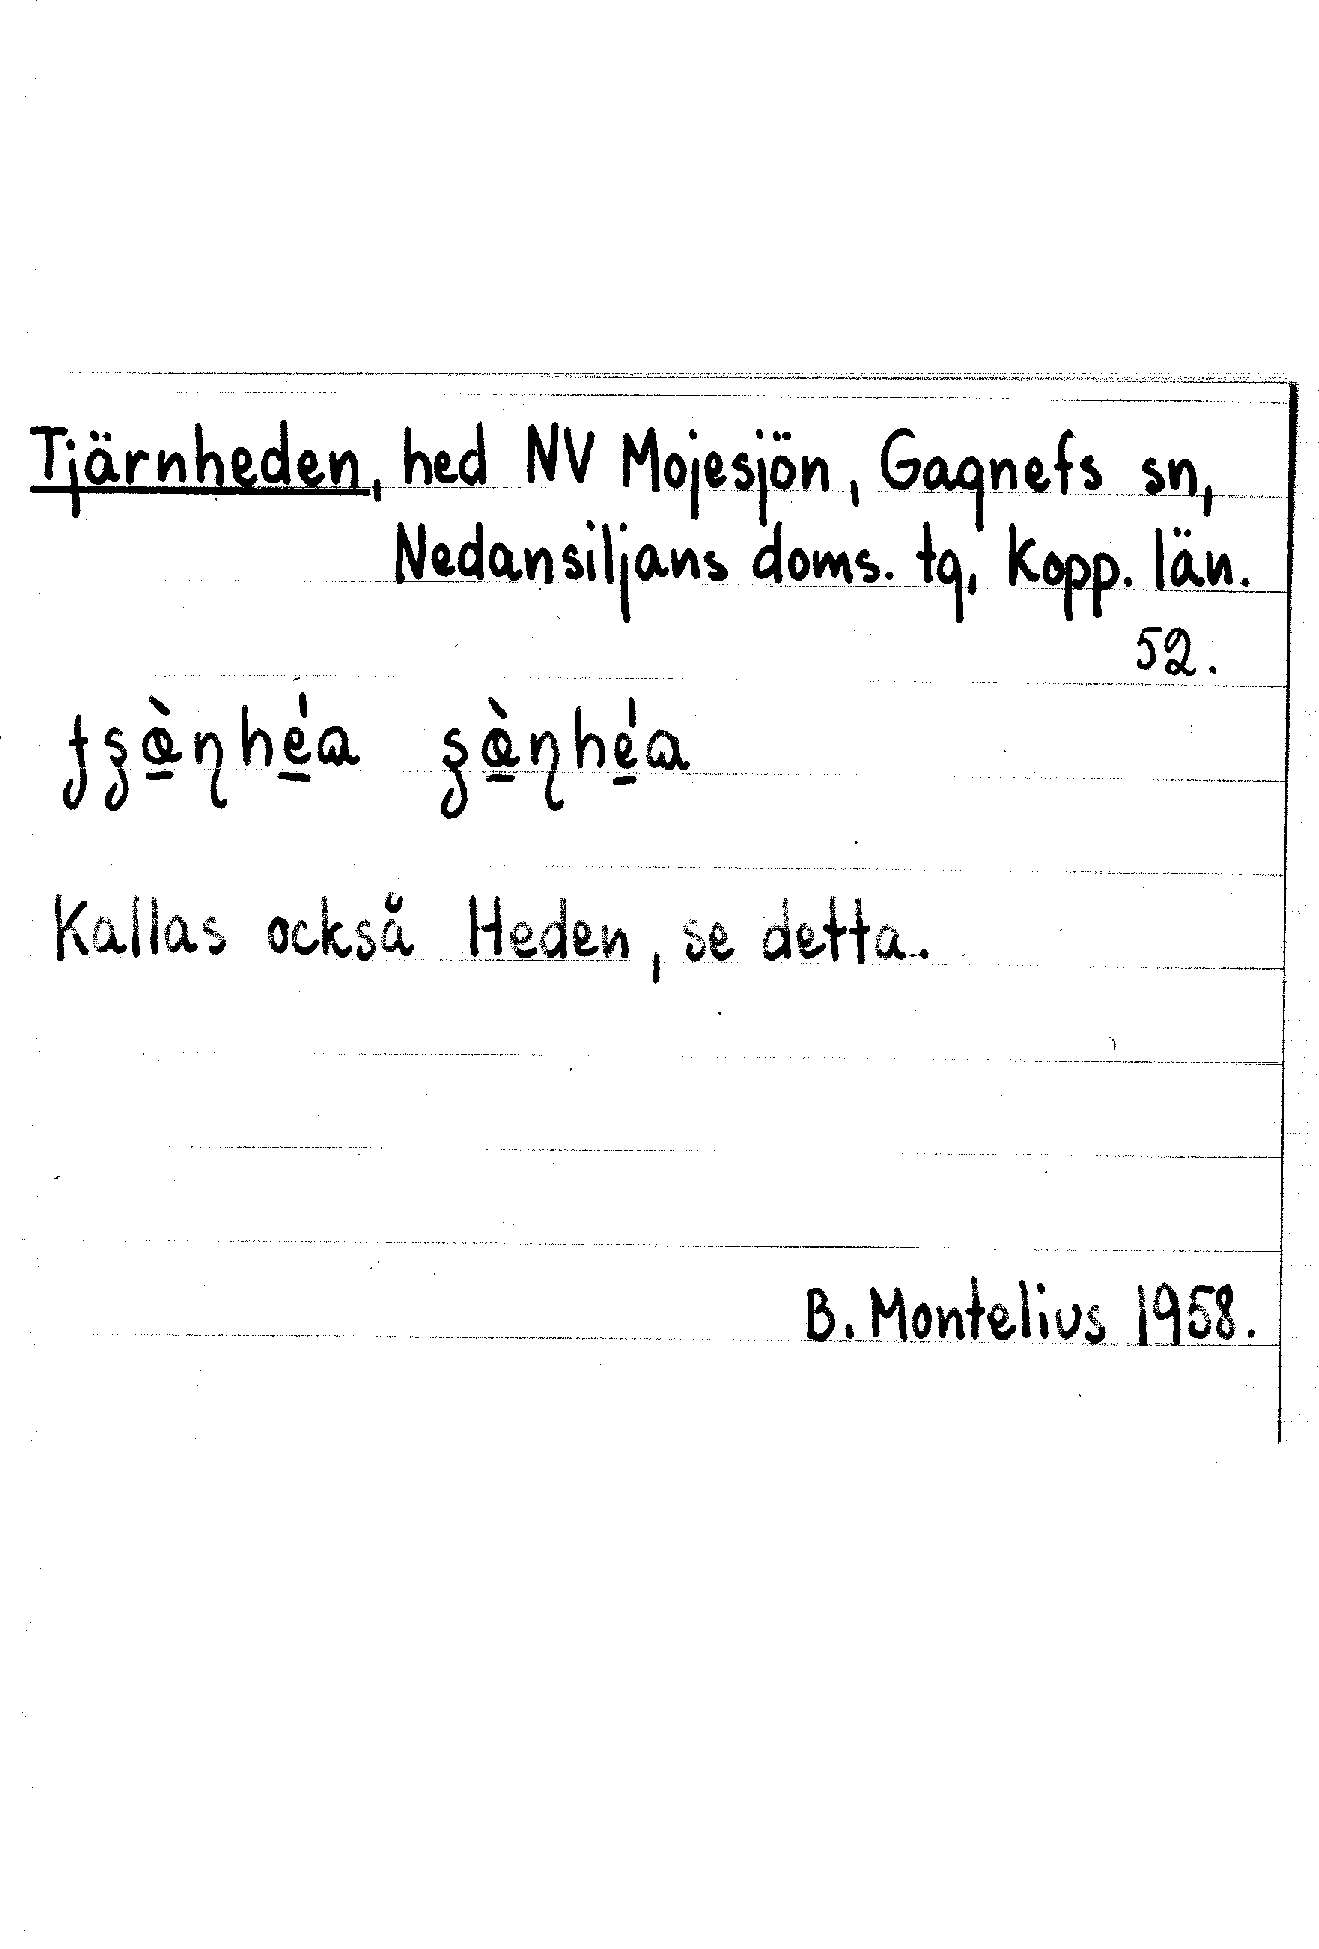 Tjärnheden, hed NV Mojesjön, Gagnefs sn,
Nedansiljans doms. tg, Kopp. län.
52.
Kallas också Heden, se detta.
B. Montelius 1958.